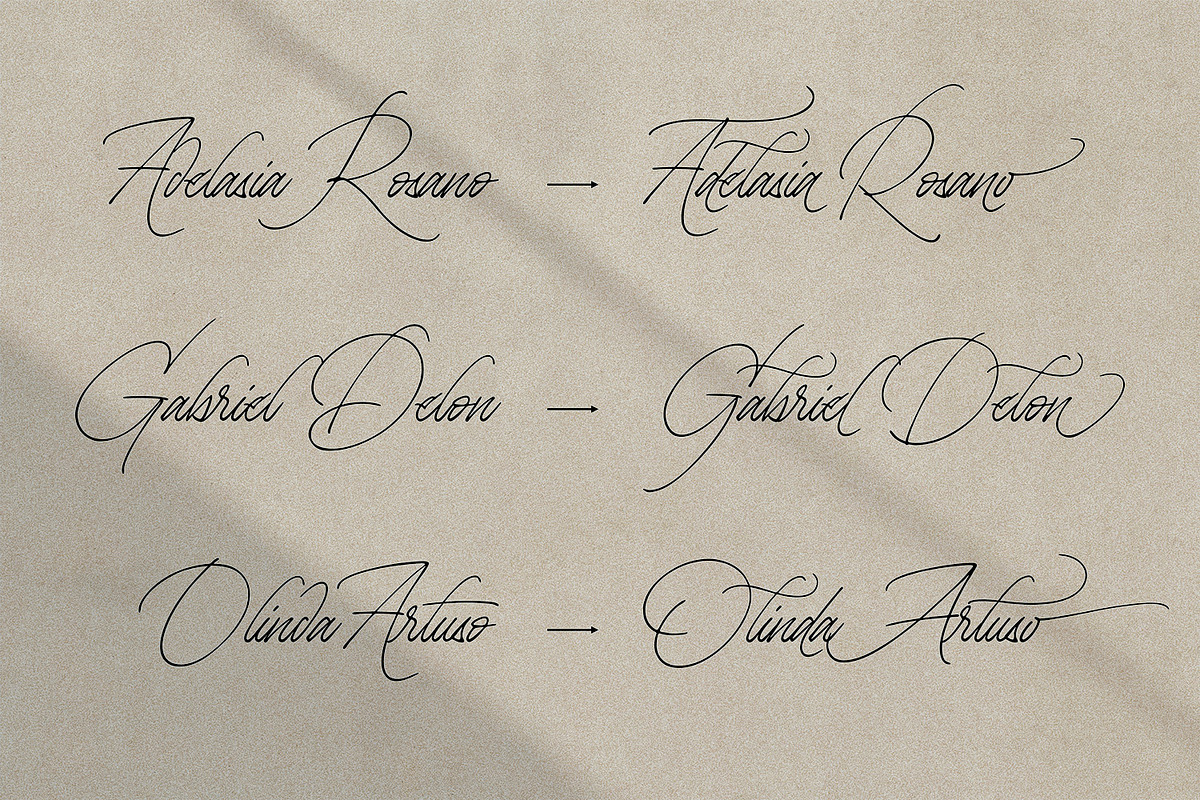 Adelasia Rosano → Adelasia Rosano
Gabriel Delon → Gabriel Delon
Olinda Artuso → Olinda Artuso